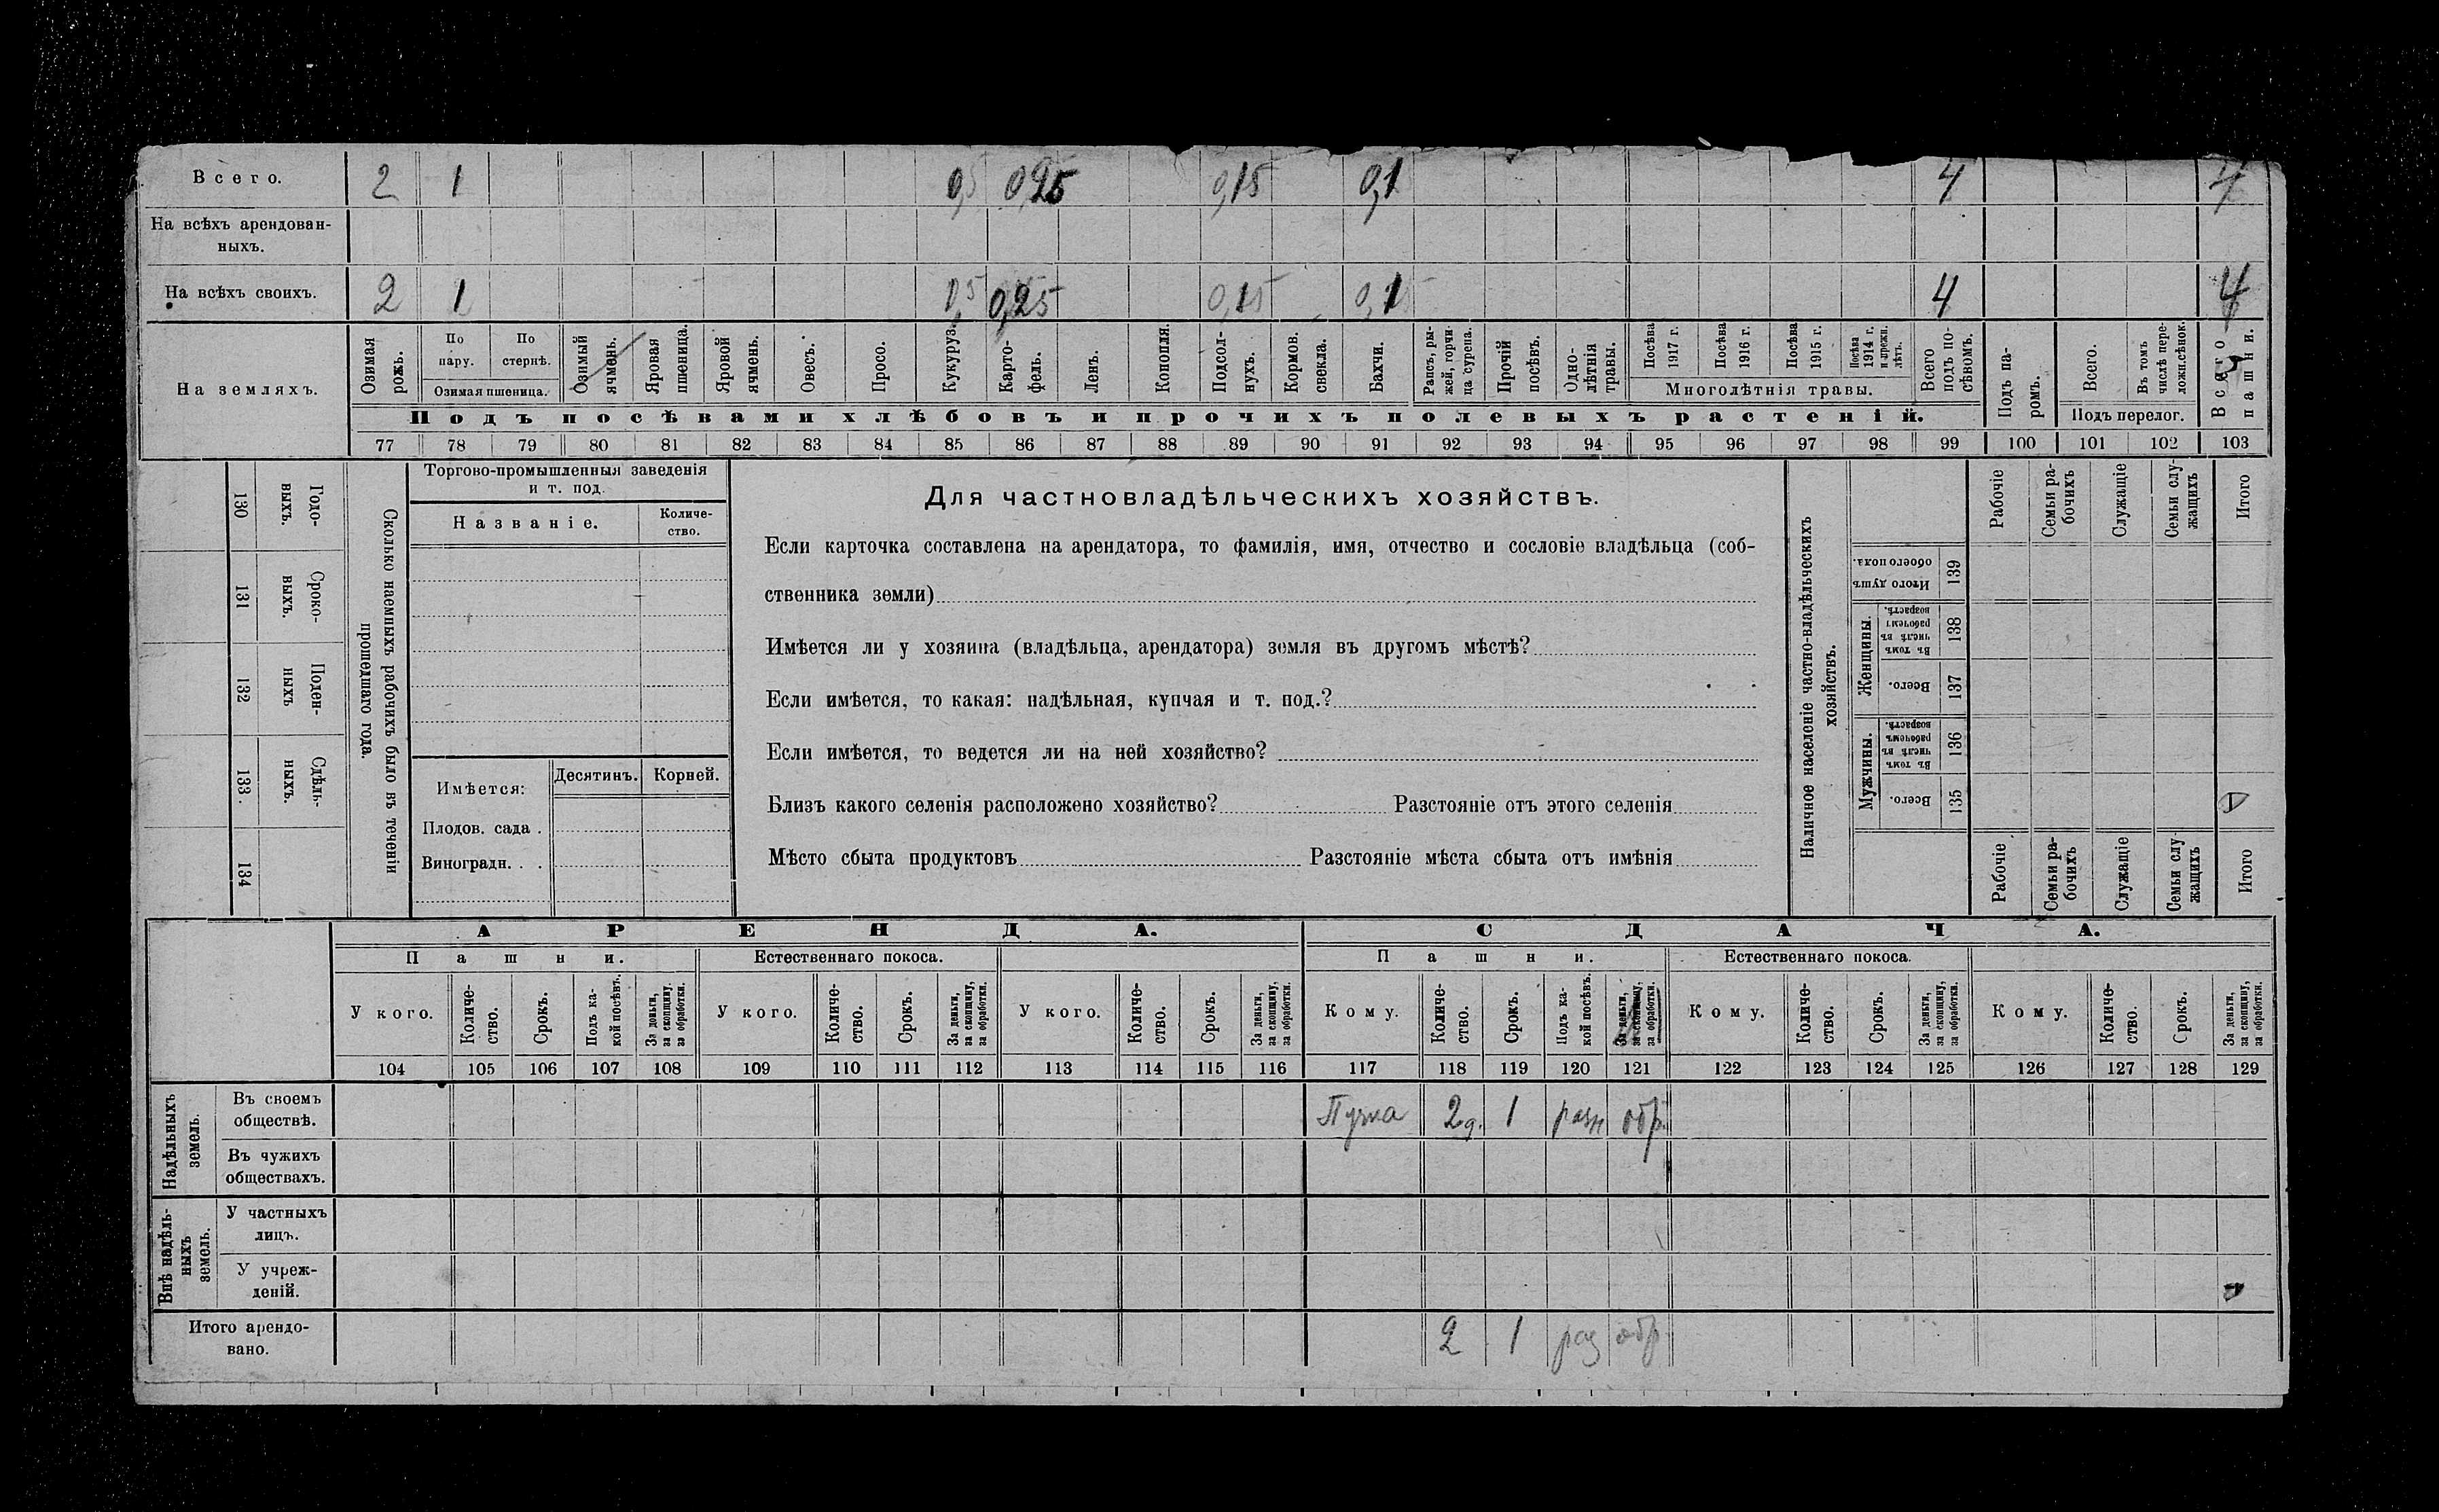 Всего. 2 1 0,5 0,25 0,15 0,1 4 4
На всѣхъ арендован-
ныхъ.
На всѣхъ своихъ. 2 1 0,5 0,25 0,15 0,1 4 4
На земляхъ.
Озимая
рожь.
По
пару.
По
стернѣ.
Озимая пшеница.
Озимый
ячмень.
Яровая
пшеница.
Яровой
ячмень.
Овесъ.
Просо.
Кукуруз.
Карто-
фель.
Ленъ.
Конопля.
Подсол-
нухъ.
Кормов.
свекла.
Бахчи.
Рапсъ, ры-
жей, горчи-
ца сурепа.
Прочій
посѣвъ.
Одно-
лѣтнія
травы.
Посѣва
1917 г.
Посѣва
1916 г.
Посѣва
1915 г.
Посѣва
1914 г.
и прежн.
лѣтъ.
Многолѣтнія травы.
Всего
подъ по-
сѣвомъ.
Подъ па-
ромъ.
Всего.
Въ томъ
числѣ пере-
ложн.сѣнок.
Подъ перелог.
Всего
пашни.
Подъ посѣвами хлѣбовъ и прочихъ полевыхъ растеній.
77 78 79 80 81 82 83 84 85 86 87 88 89 90 91 92 93 94 95 96 97 98 99 100 101 102 103
130
Годо-
выхъ.
131
Сроко-
выхъ.
132
Поден-
ныхъ
133.
Сдѣль-
ныхъ.
134
Сколько наемныхъ рабочихъ было въ теченіи
прошедшаго года.
Торгово-промышленныя заведенія
и т. под.
Названіе.
Количе-
ство.
Имѣется:
Десятинъ. Корней.
Плодов. сада .
Виноградн. . .
Для частновладѣльческихъ хозяйствъ.
Если карточка составлена на арендатора, то фамилія, имя, отчество и сословіе владѣльца (соб-
ственника земли)
Имѣется ли у хозяина (владѣльца, арендатора) земля въ другомъ мѣстѣ?
Если имѣется, то какая: надѣльная, купчая и т. под.?
Если имѣется, то ведется ли на ней хозяйство?
Близъ какого селенія расположено хозяйство? Разстояніе отъ этого селенія
Мѣсто сбыта продуктовъ Разстояніе мѣста сбыта отъ имѣнія
Наличное населеніе частно-владѣльческихъ
хозяйствъ.
Рабочіе
Семьи ра-
бочихъ
Служащіе
Семьи слу-
жащихъ
Итого
Итого душъ
обоего пола.
139
Женщины.
Въ томъ
числѣ въ
рабочемъ
возрастѣ.
138
Всего.
137
Мужчины.
Въ томъ
числѣ въ
рабочемъ
возрастѣ.
136
Всего.
135
Рабочіе
Семьи ра-
бочихъ
Служащіе
Семьи слу
жащихъ
Итого
АРЕНДА. СДАЧА.
Пашни. Естественнаго покоса. Пашни. Естественнаго покоса.
У кого.
Количе-
ство.
Срокъ.
Подъ ка-
кой посѣвъ.
За деньги,
за скопщину,
за обработки.
У кого.
Количе-
ство.
Срокъ.
За деньги,
за скопщину,
за обработки.
У кого.
Количе-
ство.
Срокъ.
За деньги,
за скопщину,
за обработки.
Кому.
Количе-
ство.
Срокъ.
Подъ ка-
кой посѣвъ.
За деньги,
за скопщину,
за обработки.
Кому.
Количе-
ство.
Срокъ.
За деньги,
за скопщину,
за обработки.
Кому.
Количе-
ство.
Срокъ.
За деньги,
за скопщину,
за обработки.
104 105 106 107 108 109 110 111 112 113 114 115 116 117 118 119 120 121 122 123 124 125 126 127 128 129
Надѣльныхъ
земель.
Въ своемъ
обществѣ.
2д. 1 разн обр.
Въ чужихъ
обществахъ.
Внѣ надѣль-
ныхъ
земель.
У частныхъ
лицъ.
У учреж-
деній.
Итого арендо-
вано.
2 1 раз обр.